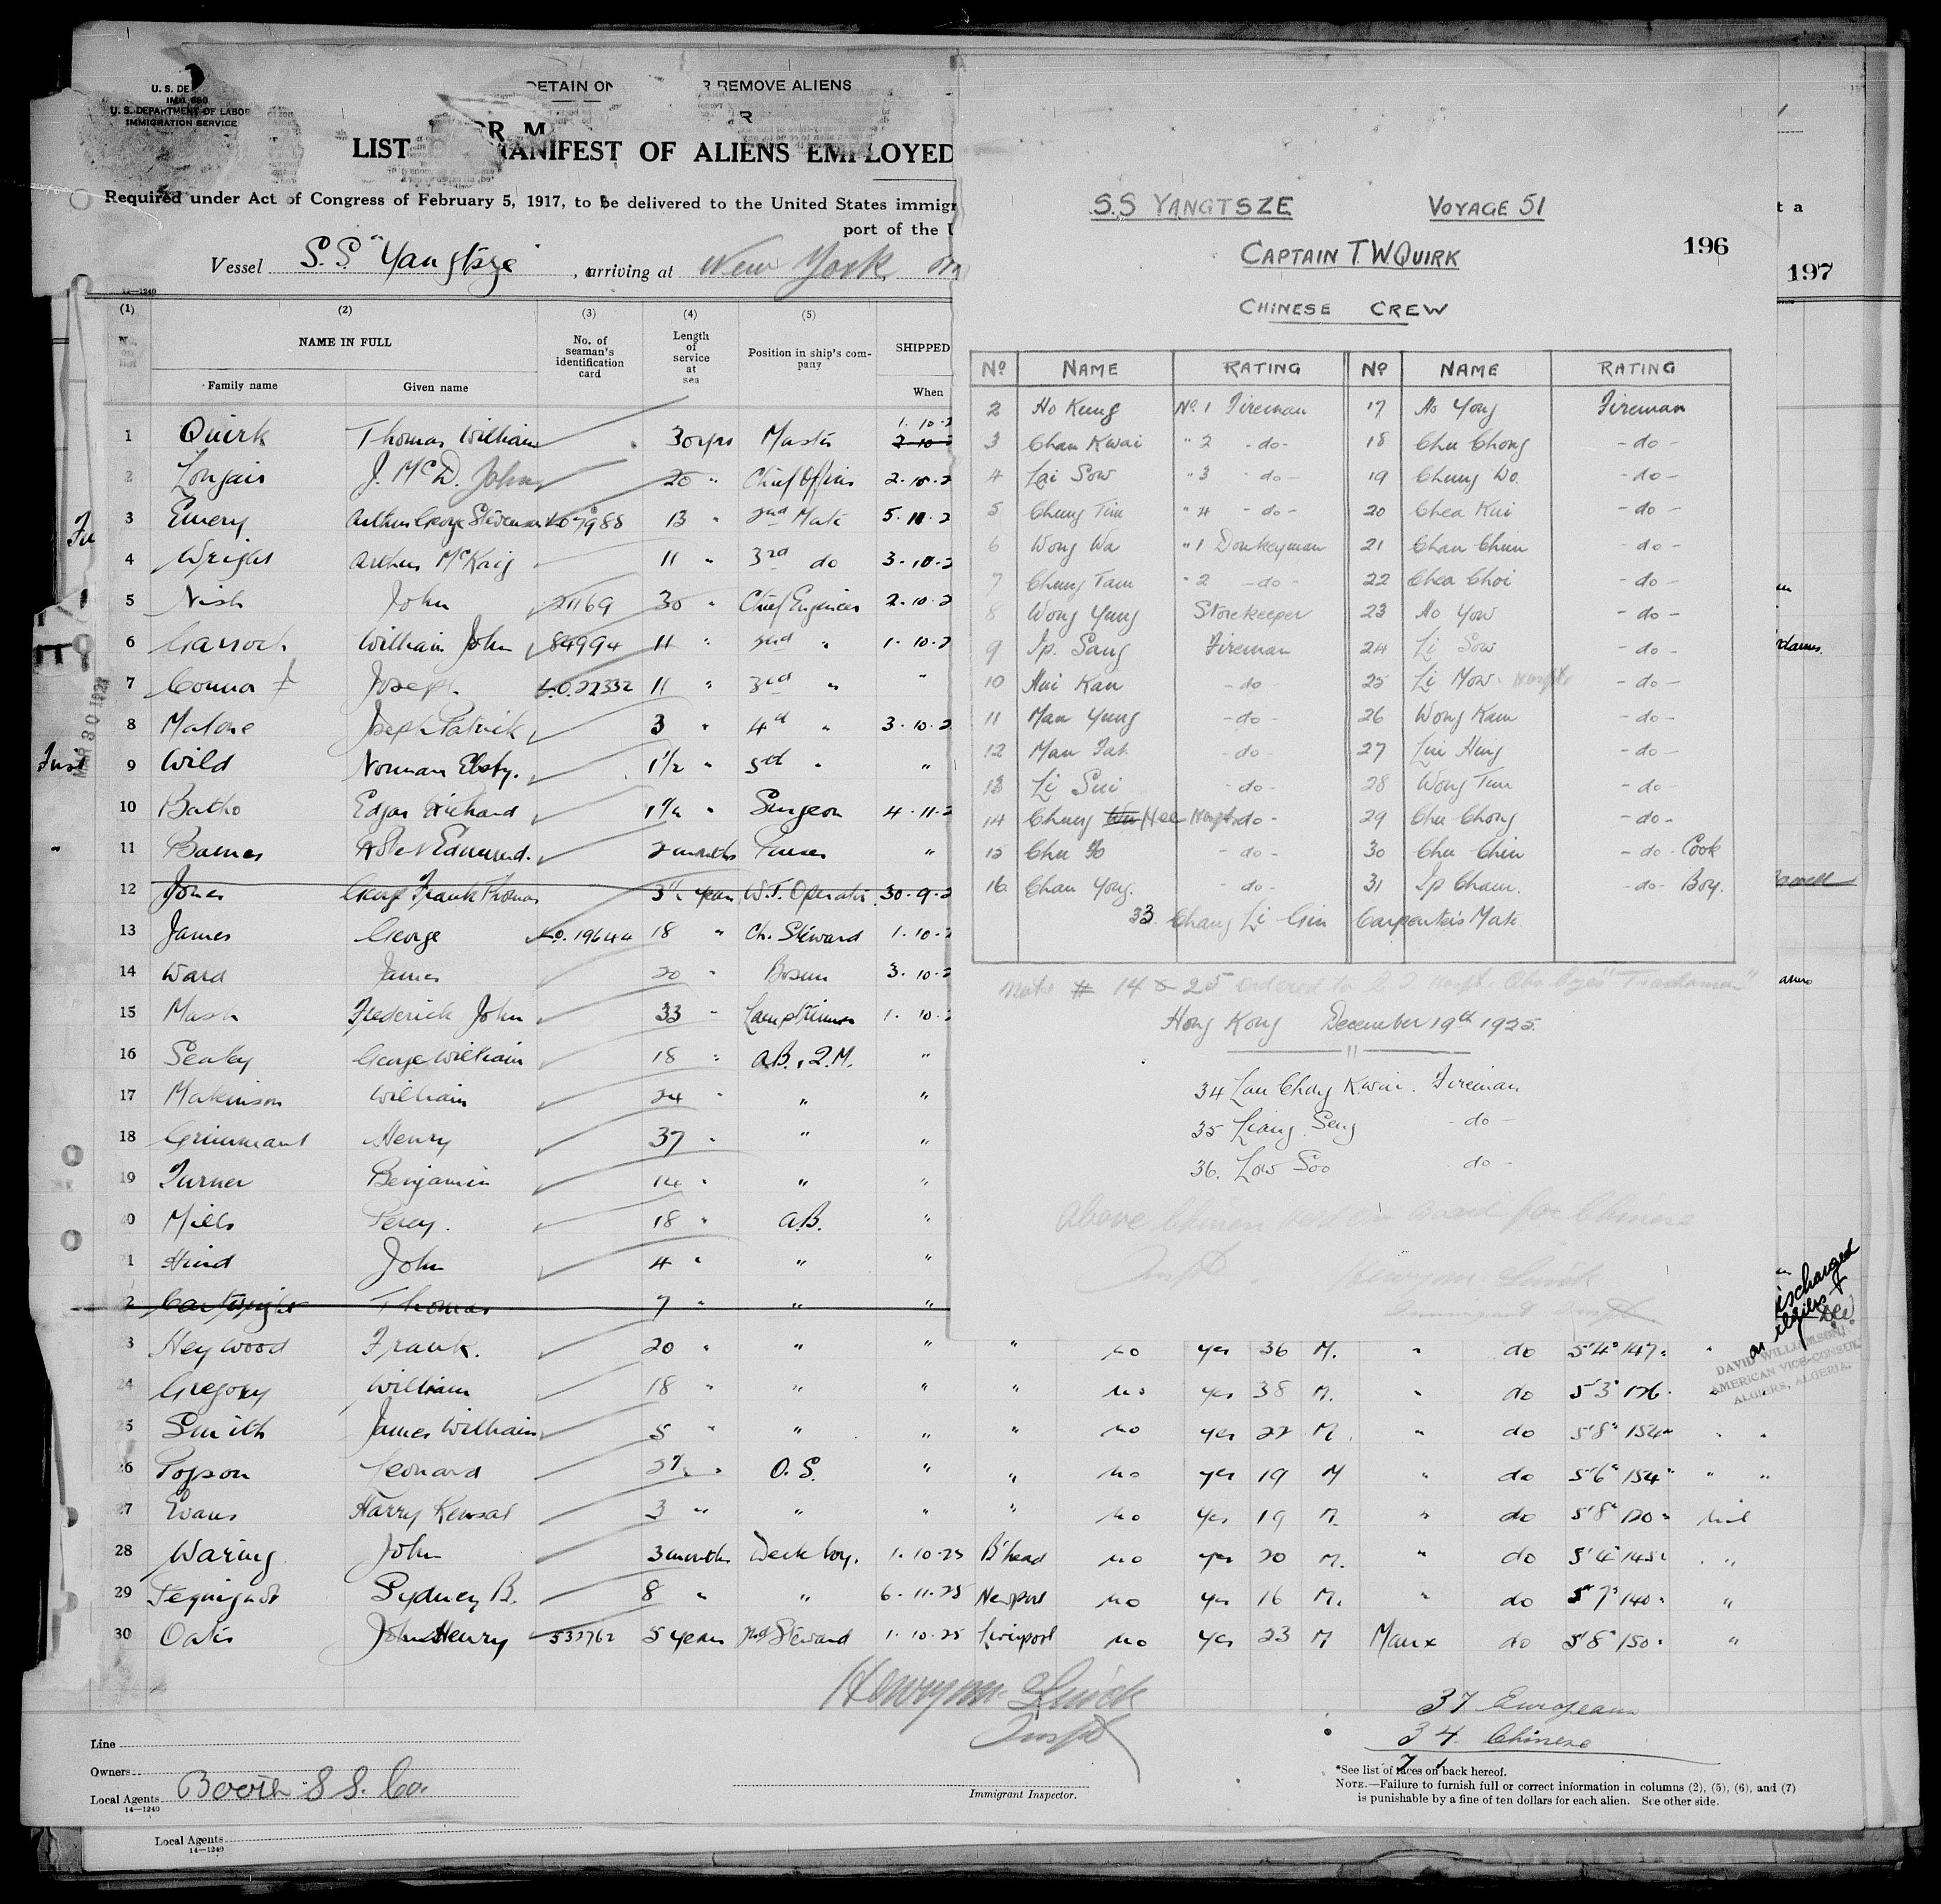 U. S. DE
U. S. DEPARTMENT OF LABOR
IMMIGRATION SERVICE
DETAIN OR REMOVE ALIENS
LIST MANIFEST OF ALIENS EMPLOYED
Required under Act of Congress of February 5, 1917, to be delivered to the United States immigr
port of the U
Vessel S.S. "Yangtsze" , arriving at New York,
14—1240
(1) (2) (3) (4) (5)
No. on list NAME IN FULL No. of seaman's identification card Length of service at sea Position in ship's company SHIPPED
Family name Given name When
1 Quirk Thomas William 30 yrs Master 1. 10. 2
2 Longair J. McD. John 20 " Chief Officer 2. 10. 2
3 Emery Arthur George Stevenson 13 " 2nd Mate 5. 11. 2
4 Wright Arthur McKaig 11 " 3rd do 3. 10. 2
5 Nish John 21169 30 " Chief Engineer 2. 10. 2
6 Garroch William John 84994 11 " 2nd " 1. 10. 2
7 Connor Joseph 22332 11 " 3rd " "
8 Malone Joseph Patrick 3 " 4th " 3. 10. 2
9 Wild Norman 1½ " 5th " "
10 Batho Edgar Richard " Surgeon 4. 11. 2
11 Barnes Edmund. 2 months Purser "
12 Jones George Frank Thomas 3½ years W.T. Operator 30. 9. 2
13 James George 19644 18 " Ch. Steward 1. 10. 2
14 Ward James 20 " Bosun 3. 10. 2
15 Mash Frederick John 33 " Lamptrimmer 1. 10. 2
16 Sealey George William 18 " A.B., Q.M. "
17 Makinson William 24 " " "
18 Henry 37 " " "
19 Turner Benjamin 14 " " "
20 Mills Percy. 18 " A.B. "
21 Hind John 4 " " "
2 Cartwright Thomas 7 " " "
3 Heywood Frank. 20 " " " " no yes 36 M. " do 5'4" 147 "
24 Gregory William 18 " " " " no yes 38 M. " do 5'3"
25 Smith James William 5 " " " " no yes 22 M. " do 5'8" 152 " "
26 Popson Leonard 2½ " O.S. " " no yes 19 M " do 5'6" 154 " "
27 Evans Harry Kensal 3 " " " " no yes 19 M. " do 5'8" nil
28 Waring John 3 months Deck boy. 1. 10. 25 B'head no yes 20 M. " do 5'4" "
29 Sydney B. 8 " " 6. 11. 25 Newport no yes 16 M. " do 5'7" 140 "
30 Oates John Henry 532762 5 years 2nd Steward 1. 10. 25 Liverpool no yes 23 M Manx do 5'8" 150 "
Henry M. Quick
Inspt
37 Europeans
34 Chinese
71
Line
Owners
Local Agents Booth S S. Co.
14—1240
Immigrant Inspector.
*See list of races on back hereof.
NOTE.—Failure to furnish full or correct information in columns (2), (5), (6), and (7)
is punishable by a fine of ten dollars for each alien. See other side.
Local Agents
14—1240
MAR 30 192
S.S YANGTSZE VOYAGE 51
196
197
CAPTAIN T.W QUIRK
CHINESE CREW
No NAME RATING No NAME RATING
2 Ho Kung No. 1 Fireman 17 Ho Yong Fireman
3 Chan Kwai " 2 - do - 18 Chu Chong - do -
4 Lai Sow " 3 - do - 19 Chung Wo. - do -
5 Chung Tim " 4 - do - 20 Chea Kui - do -
6 Wong Wa " 1 Donkeyman 21 Chan Chun - do -
7 Chung Tam " 2 - do - 22 Chea Choi - do -
8 Wong Yung Storekeeper 23 Ho Yow - do -
9 Ip. Sang Fireman 24 Li Sow - do -
10 Hui Kan - do - 25 Li Mow - do -
11 Man Yung - do - 26 Wong Kam - do -
12 Man Fat - do - 27 Lui Hing - do -
13 Li Sui - do - 28 Wong Tim - do -
14 Chung Wu Hee - do - 29 Chu Chong - do -
15 Chu - do - 30 Chu Chin - do - Cook
16 Chan Yong. - do - 31 Ip Cham. - do - Boy.
33 Chang Li Gin Carpenter's Mate
Note # 14 & 25 ordered to
Hong Kong December 19th 1925.
34 Lau Chong Kwai. Fireman
35 Liang Seng - do -
36. Low Soo do -
Above Chinese held on board for Chinese
Inspt. Henry M. Quick
Immigrant Inspt.
Discharged
DAVID WILLIAMSON
AMERICAN VICE-CONSUL
ALGIERS, ALGERIA.